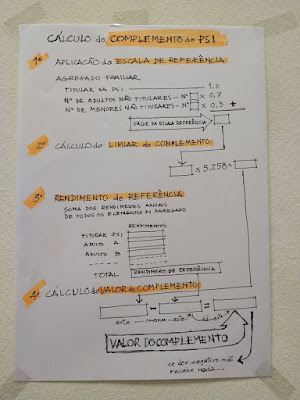 CÁLCULO do COMPLEMENTO da PSI
1º APLICAÇÃO da ESCALA DE REFERÊNCIA
AGREGADO FAMILIAR
TITULAR DA PSI 1.0
Nº DE ADULTOS NÃO TITULARES - x 0,7
Nº DE MENORES NÃO TITULARES - x 0,5 +
VALOR DA ESCALA REFERÊNCIA
2º CÁLCULO do LIMIAR do COMPLEMENTO
x 5.258 =
3º RENDIMENTO de REFERÊNCIA
SOMA DOS RENDIMENTOS ANUAIS
DE TODOS OS ELEMENTOS DO AGREGADO
RENDIMENTOS
TITULAR PSI
ADULTO A
ADULTO B
TOTAL RENDIMENTO DE REFERÊNCIA
4º CÁLCULO do VALOR do COMPLEMENTO
- =
este menos este dá
VALOR DO COMPLEMENTO
se der negativo não
recebe nada...